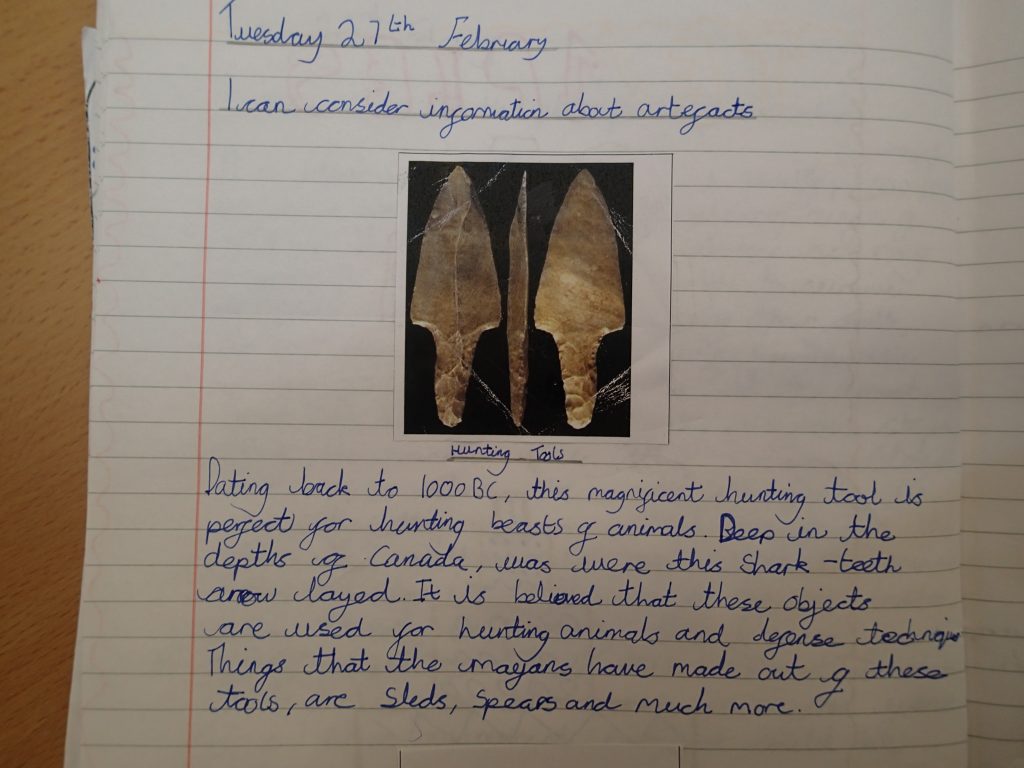 Tuesday 27th February
I can consider information about artefacts
Hunting Tools
Dating back to 1000BC, this magnificent hunting tool is
perfect for hunting beasts of animals. Deep in the
depths of Canada, was were this Shark-teeth
arrow layed. It is believed that these objects
are used for hunting animals and defense technique
Things that the mayans have made out of these
tools, are Sleds, Spears and much more.